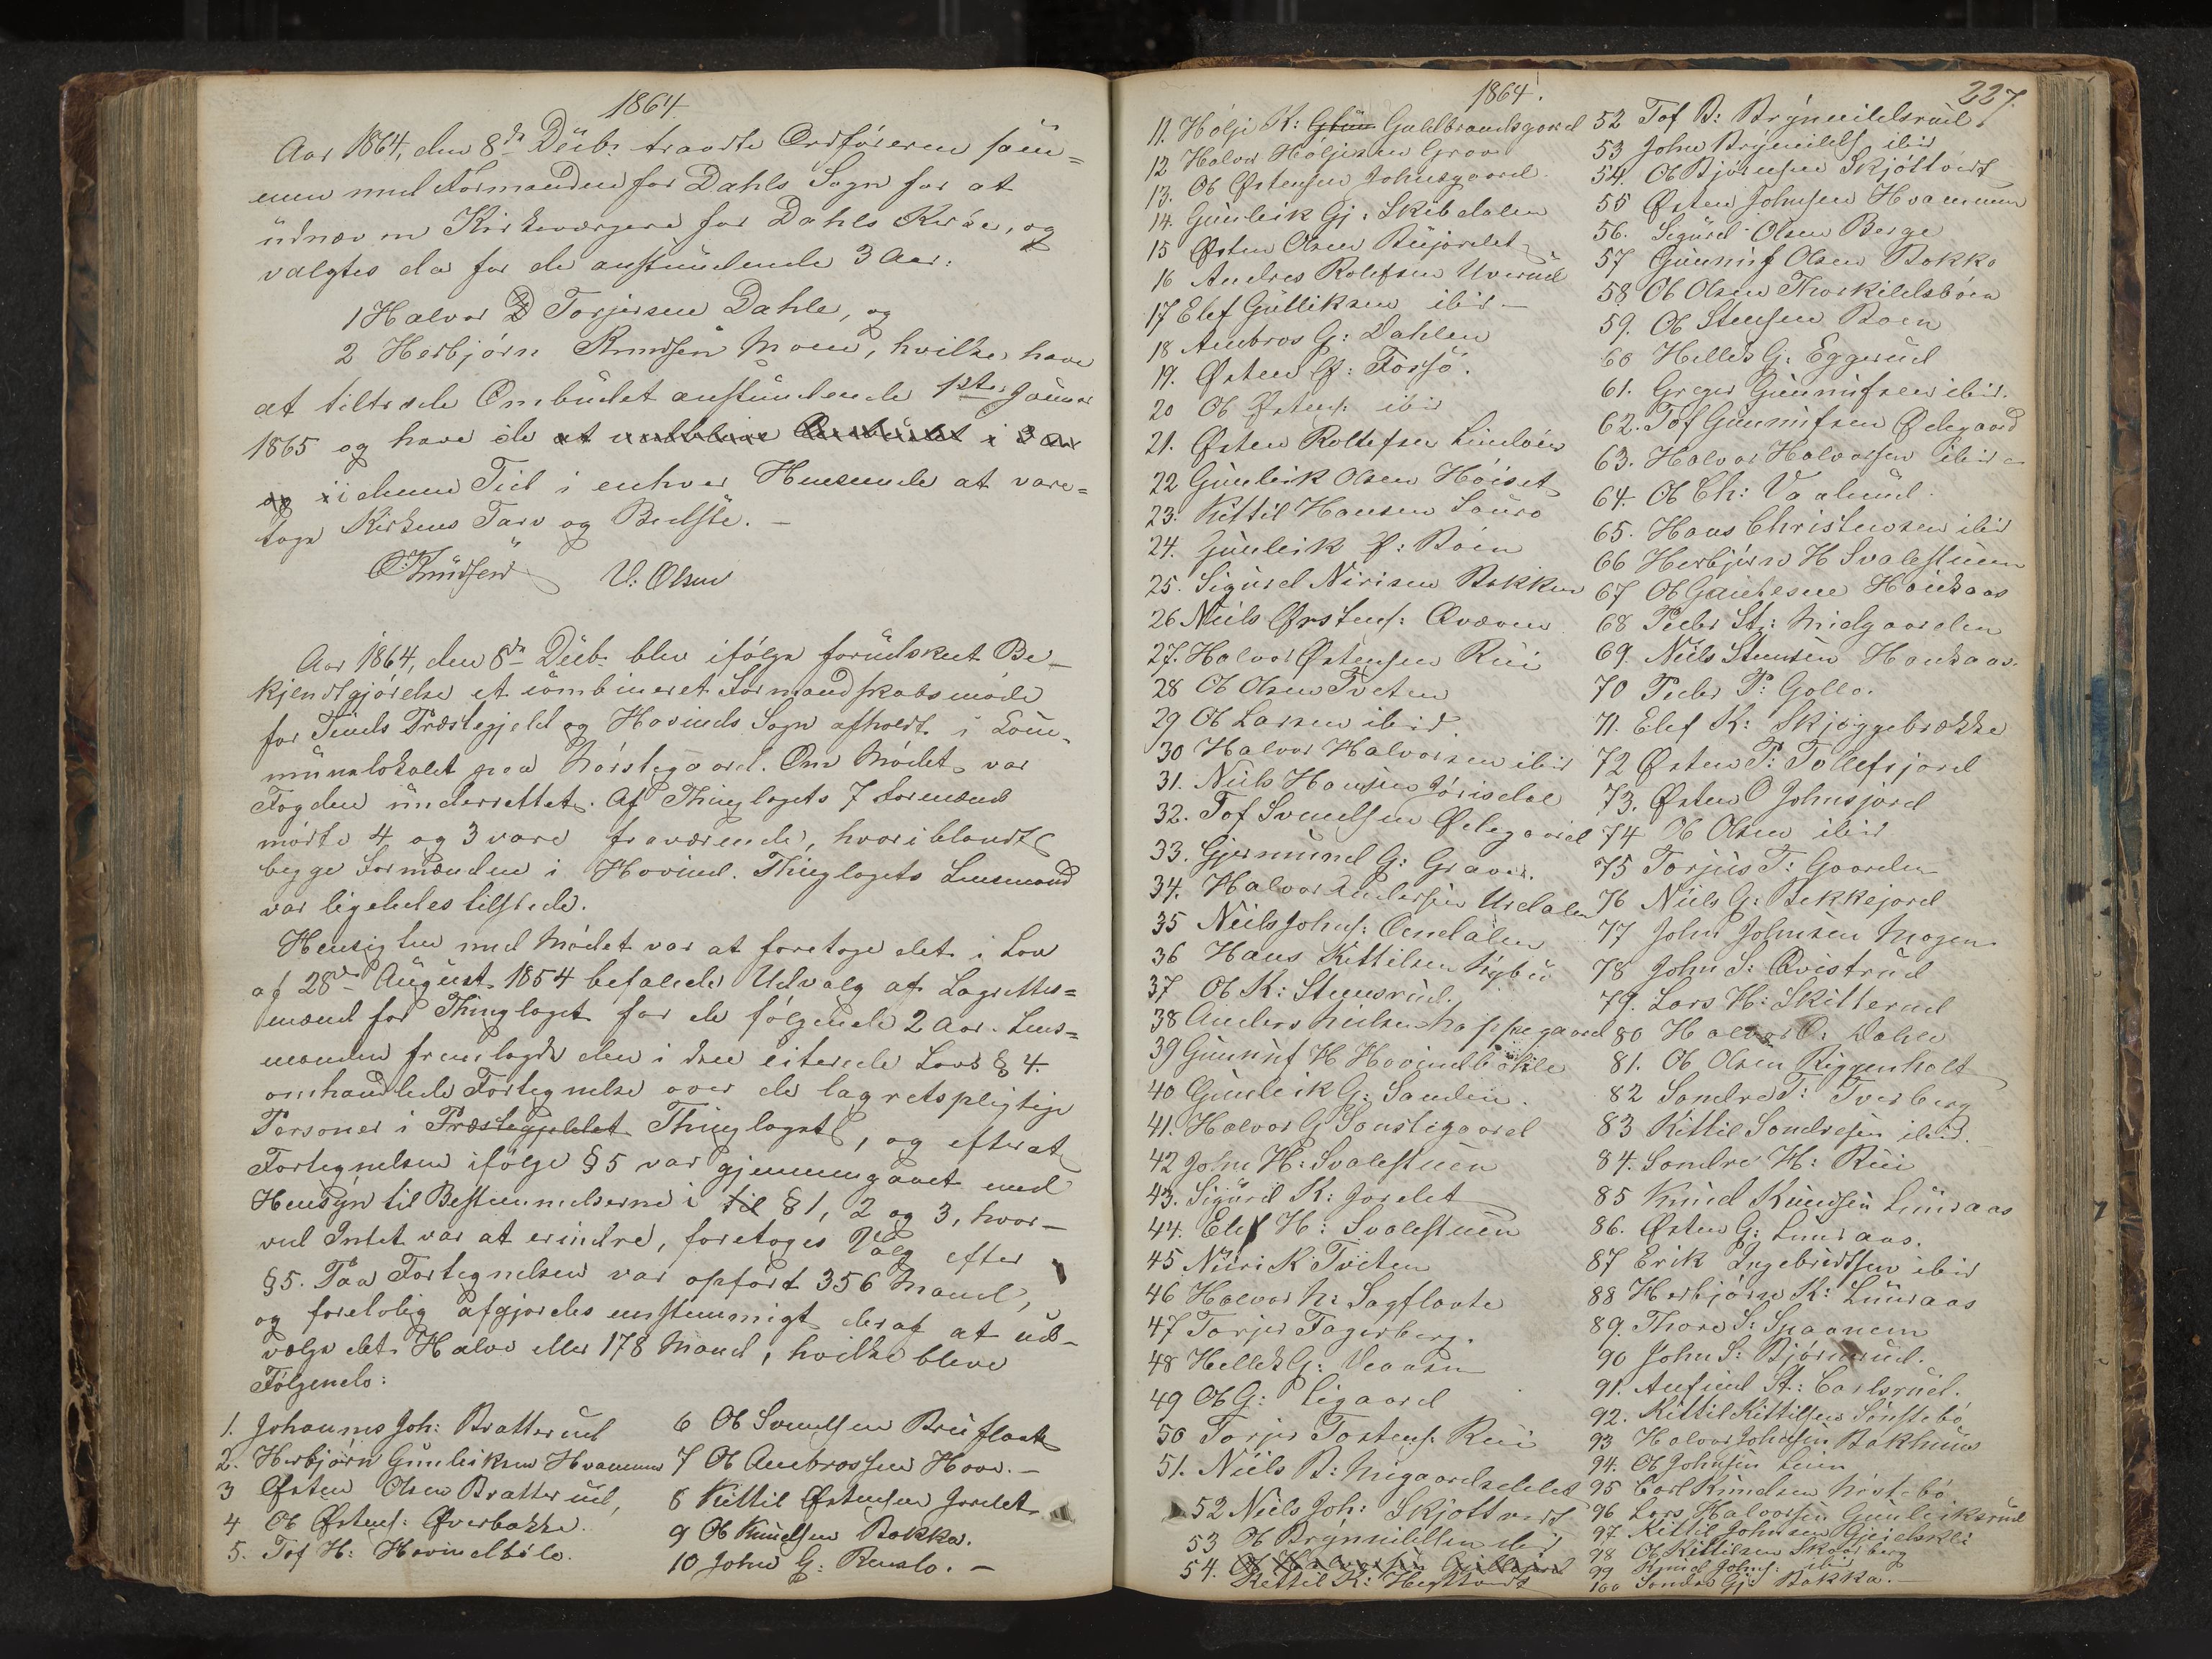 1864.
Aar 1864, den 8de Decbr. traadte Ordføreren sam=
men med Formanden for Dahls Sogn for at
udnævne Kirkeværgere for Dahls Kirke, og
valgtes da for de anstundende 3 Aar:
1 Halvor Torjersen Dahle, og
2 Herbjørn Knudsen Moen, hvilke have
at tiltræde Ombudet anstundende 1ste Januar
1865 og have de at i 3 Aar
og i denne Tid i enhver Henseende at vare=
tage Kirkens Tarv og Bedste. —
O Knudsen V: Olsen
Aar 1864, den 8de Decbr. blev ifølge forudskeet Be-
kjendtgjørelse et combineret Formandskabsmøde
for Tinds Præstegjeld og Hovinds Sogn afholdt i Com-
munelokalet paa Mørstegaard. Om Mødet var
Fogden underrettet. Af Thinglagets 7 Formænd
mødte 4 og 3 vare fraværende, hvoriblandt
begge Formændene i Hovind. Thinglagets Lensmand
var ligeledes tilstede.
Hensigten med Mødet var at foretage det i Lov
af 28de August 1854 befalede Udvalg af Lagrettes=
mænd for Thinglaget for de følgende 2 Aar. Lens=
manden fremlagde den i den citerede Lovs § 4
omhandlede Fortegnelse over de lagretspligtige
Personer i Præstegjeldet Thinglaget, og efterat
Fortegnelsen ifølge § 5 var gjennemgaaet med
Hensyn til Bestemmelserne i til § 1, 2 og 3, hvor-
ved Intet var at erindre, foretoges Valg efter
§ 5. Paa Fortegnelsen var opført 356 Mand,
og foreløbig afgjordes enstemmigt deraf at ud-
vælge det Halve eller 178 Mand, hvilke bleve
Følgende:
1. Johannes Joh: Bratterud
2. Herbjørn Gunleiksen Hvammen
3 Østen Olsen Bratterud,
4 Ol Østens: Øverbakke.
5. Tof H: Hovindbøle.
6 Ol Svendsen Bruflaat
7 Ol Ambrossen Hove. —
8 Kittil Østensen Jordet
9 Ol Knudsen Bakka.
10 John G: Rendlo. —
1864.
227.
11. Holje K: Gulbrandsgaard
12 Halvor Holjesen Grave
13. Ol Østensen Johnsgaard.
14. Gunleik Gj: Skibdalen
15 Østen Olsen Bujordet
16 Andres Rolefsen Uverud
17 Elef Gulliksen ibid —
18 Ambros G: Dahlen
19. Østen Ø: Fossø.
20 Ol Østens: ibid
21. Østen Rollefsen Lindøen
22 Gunleik Olsen Høiset
23. Kittil Hansen Saura
24. Gunleik Ø: Bøen
25. Sigurd Nirisen Bakken
26 Niels Ørstens: Qværne
27. Halvor Østensen Rui
28 Ol Olsen Tveten
29 Ol Larsen ibid.
30 Halvor Halvorsen ibid
31. Niels Hansen Jørisdal
32. Tof Svendsen Ødegaard
33. Gjermund G: Graver.
34. Halvor Andersen Urdalen
35 Niels Johns: Omdalen
36 Hans Kittilsen Nybu
37 Ol K: Stensrud.
38 Anders Nielsen Hoppegaard
39 Gunnuf H Hovindbøle
40 Gunleik G: Sanden.
41. Halvor G Sønstegaard
42 John H: Svalestuen
43. Sigurd K: Jordet
44. Elef H: Svalestuen
45 Niri K: Tveten
46 Halvor N: Sagflaate
47 Torjer Fagerberg.
48 Hellek G: Veaasen
49 Ol G: Ligaard
50 Torjer Tostens: Rui
51. Niels B: Migaardsdelet
52 Niels Joh: Skjøttvedt
53 Ol Brynnildsen ibid
54.
Kettil K: Hegtvedt
52 Tof B: Brynnildsrud
53 John Brynnilds: ibid
54. Ol Bjørnsen Skjøttvedt
55 Østen Johnsen Hvammen
56. Sigurd Olsen Berge
57 Gunnuf Olsen Bakka
58 Ol Olsen Thorkildsbøen
59. Ol Stensen Boen
60 Hellek G: Eggerud
61. Greger Gunnufsen ibid.
62. Tof Gunnufsen Ødegaard
63. Halvor Halvorsen ibid —
64. Ol Ch: Vaalerud
65. Hans Christensen ibid
66 Herbjørn H Svalestuen
67 Ol Gautesen Haukaas
68 Peder St: Midgaarden
69. Niels Stensen Haukaas.
70 Peder P: Gollo.
71. Elef K: Skjæggebrække
72 Østen P: Tollefsjord
73. Østen O Johnsjord
74 Ol Olsen ibid
75 Torjus T: Gaarden
76 Niels G: Bekkejord
77 John Johnsen Mogen
78 John S: Qvistrud
79. Lars H: Skitterud
80 Halvor O: Dalen
81. Ol Olsen Biggenholt
82 Sondre T: Tverberg
83 Kittil Sondresen ibid.
84. Sondre H: Rui
85 Knud Knudsen Luraas
86. Østen G: Luraas.
87 Erik Ingebretsen ibid
88 Herbjørn K: Luraas
89. Thore S: Spaanem
90 John S: Bjørnerud.
91. Anfind St: Carlsrud.
92. Kittil Kittilsen Sønstebø
93 Halvor Johnsen Bakhuus
94. Ol Johnsen
95 Carl Knudsen Mostebø
96 Lars Halvorsen Gunleiksrud
97. Kittil Johnsen
98 Ol Kittilsen Skaarberg
99 Knud Johns: ibid
100 Sondre Gj: Bakka. —